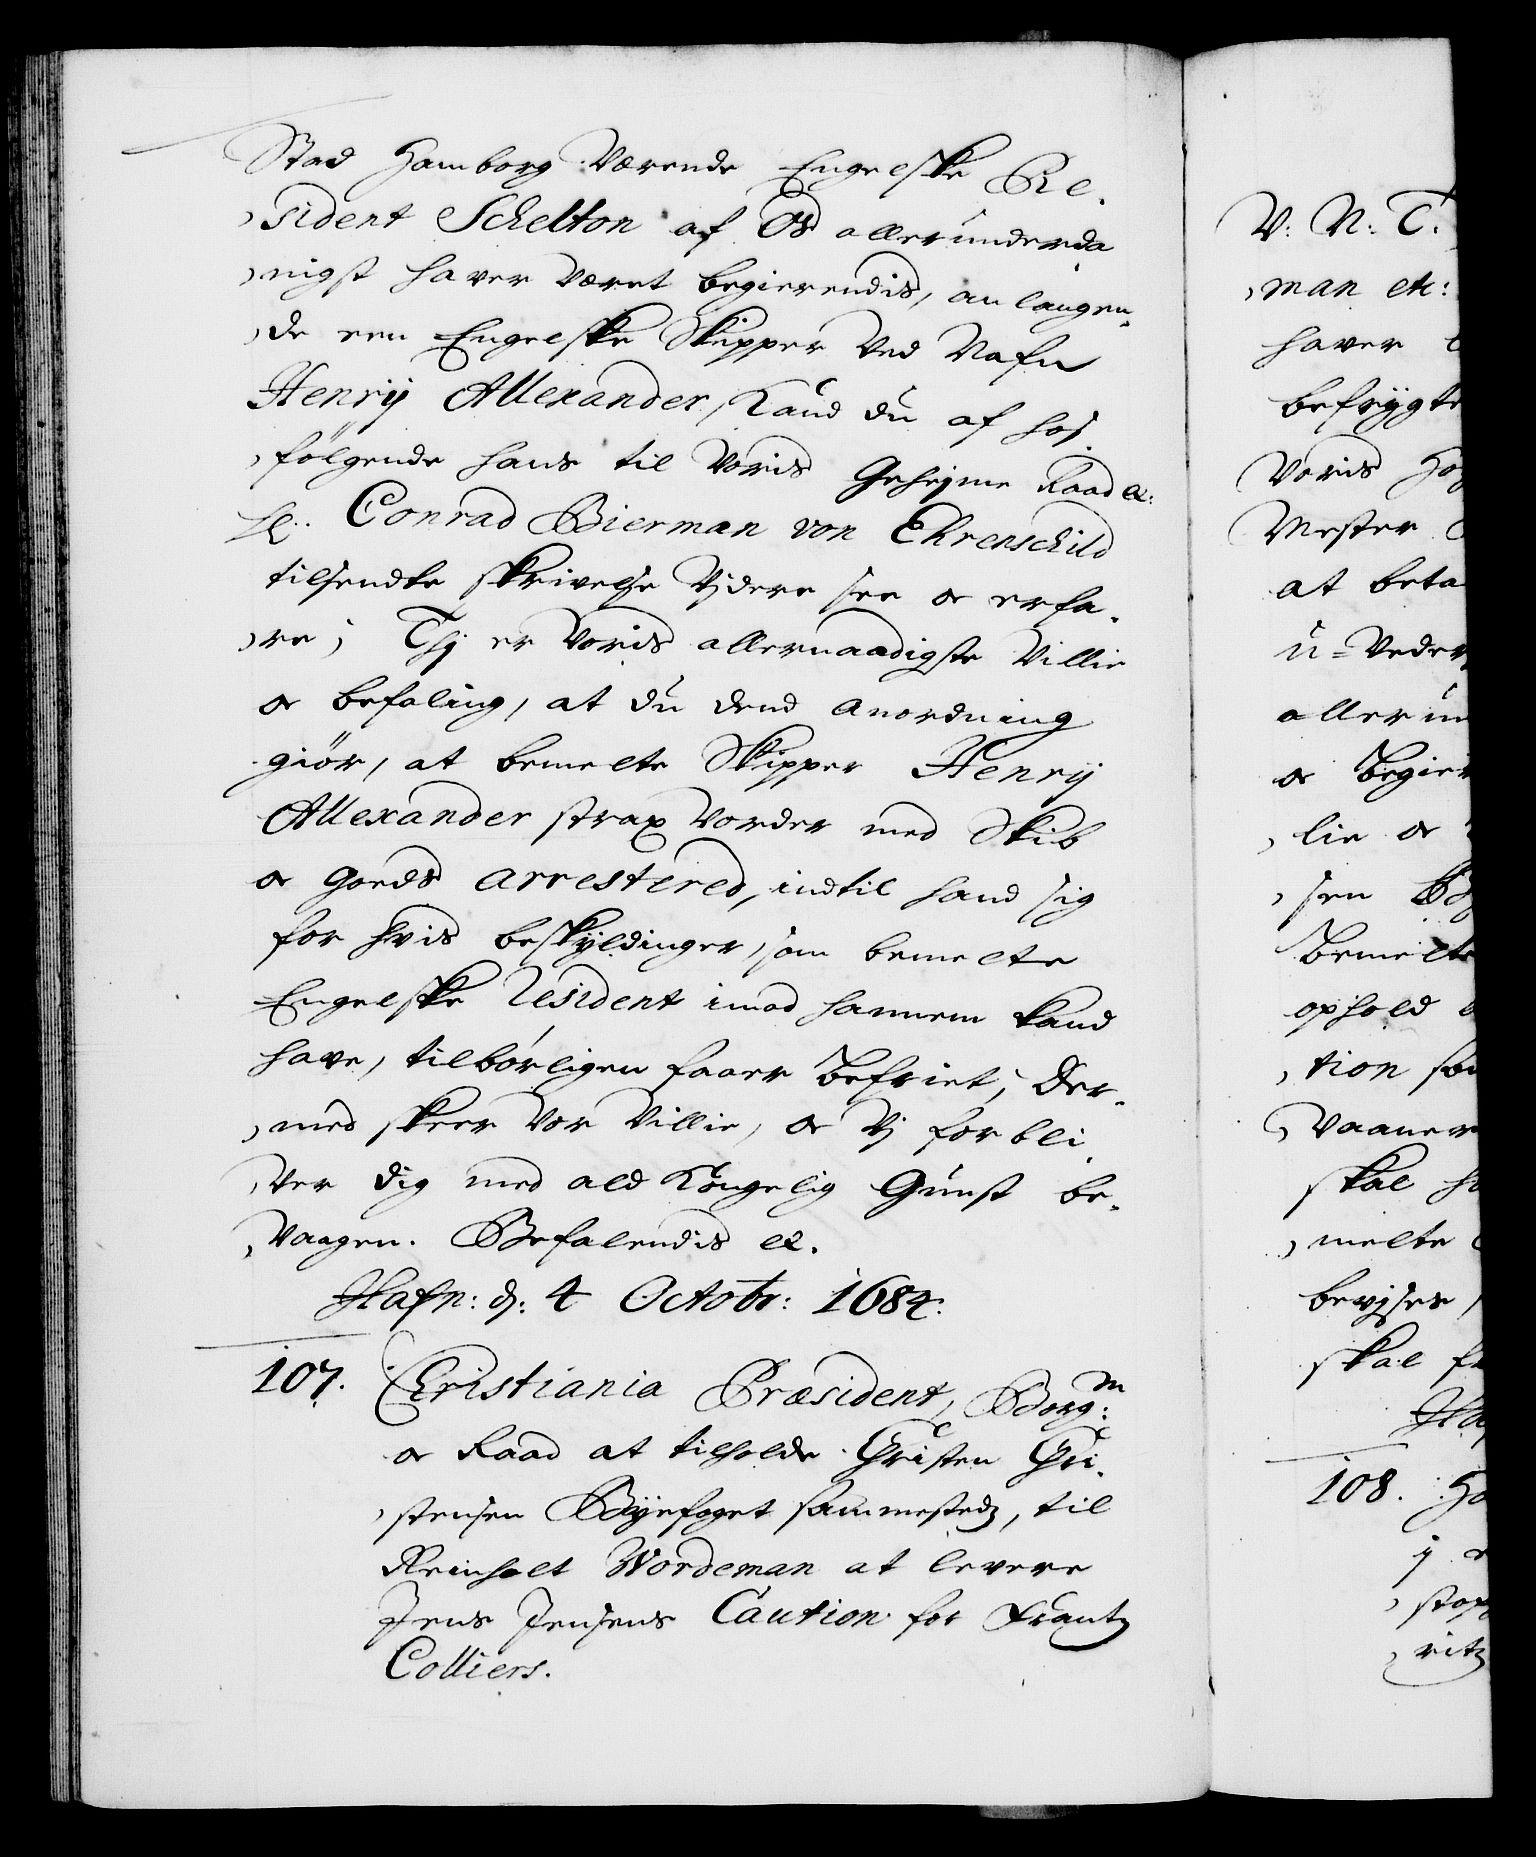 Stad Hamborg værende Engelske Re-
sident Schelton af Os allerunderda
nigst haver været begierendis, anlangen-
de een Engelske Skipper ved Nafn
Henrij Allexander, kand du af hos-
følgende hans til Voris Geheime Raad etc:
Hr. Conrad Bierman von Ehrenschild
tilsendte skrivelse vjdere see oc erfa-
re; Thj er Voris allernaadigste Villie
oc befaling, at du dend anordning
giör, at bemelte Skipper Henrij
Allexander strax vorder med Skib
oc Goeds arrestered, indtil hand sig
for hvis beskyldinger, som bemelte
Engelske Resident imod hannem kand
have, tilbörligen faaer befriet; Der-
med skeer Vor Villie, oc Vj forbli
ver dig med ald Kongelig Gunst be-
vaagen. Befalendis etc.
Hafn: d: 4 Octobr: 1684.
107. Christiania Præsident, Borgm:
oc Raad at tilholde Christen Chri-
stensen Byefoget sammestedz, til
Reinholt Wordeman at levere
Jens Jensens Caution for Frantz
Colliers.
V: N: T.
man etc:
haver
befrygte
Voris
Mester
at beta
u-veder
allerun
oc begier
lie oc
sen
bemelte
ophold
tion
vaaner
skal
melte
bevjses,
skal
108.